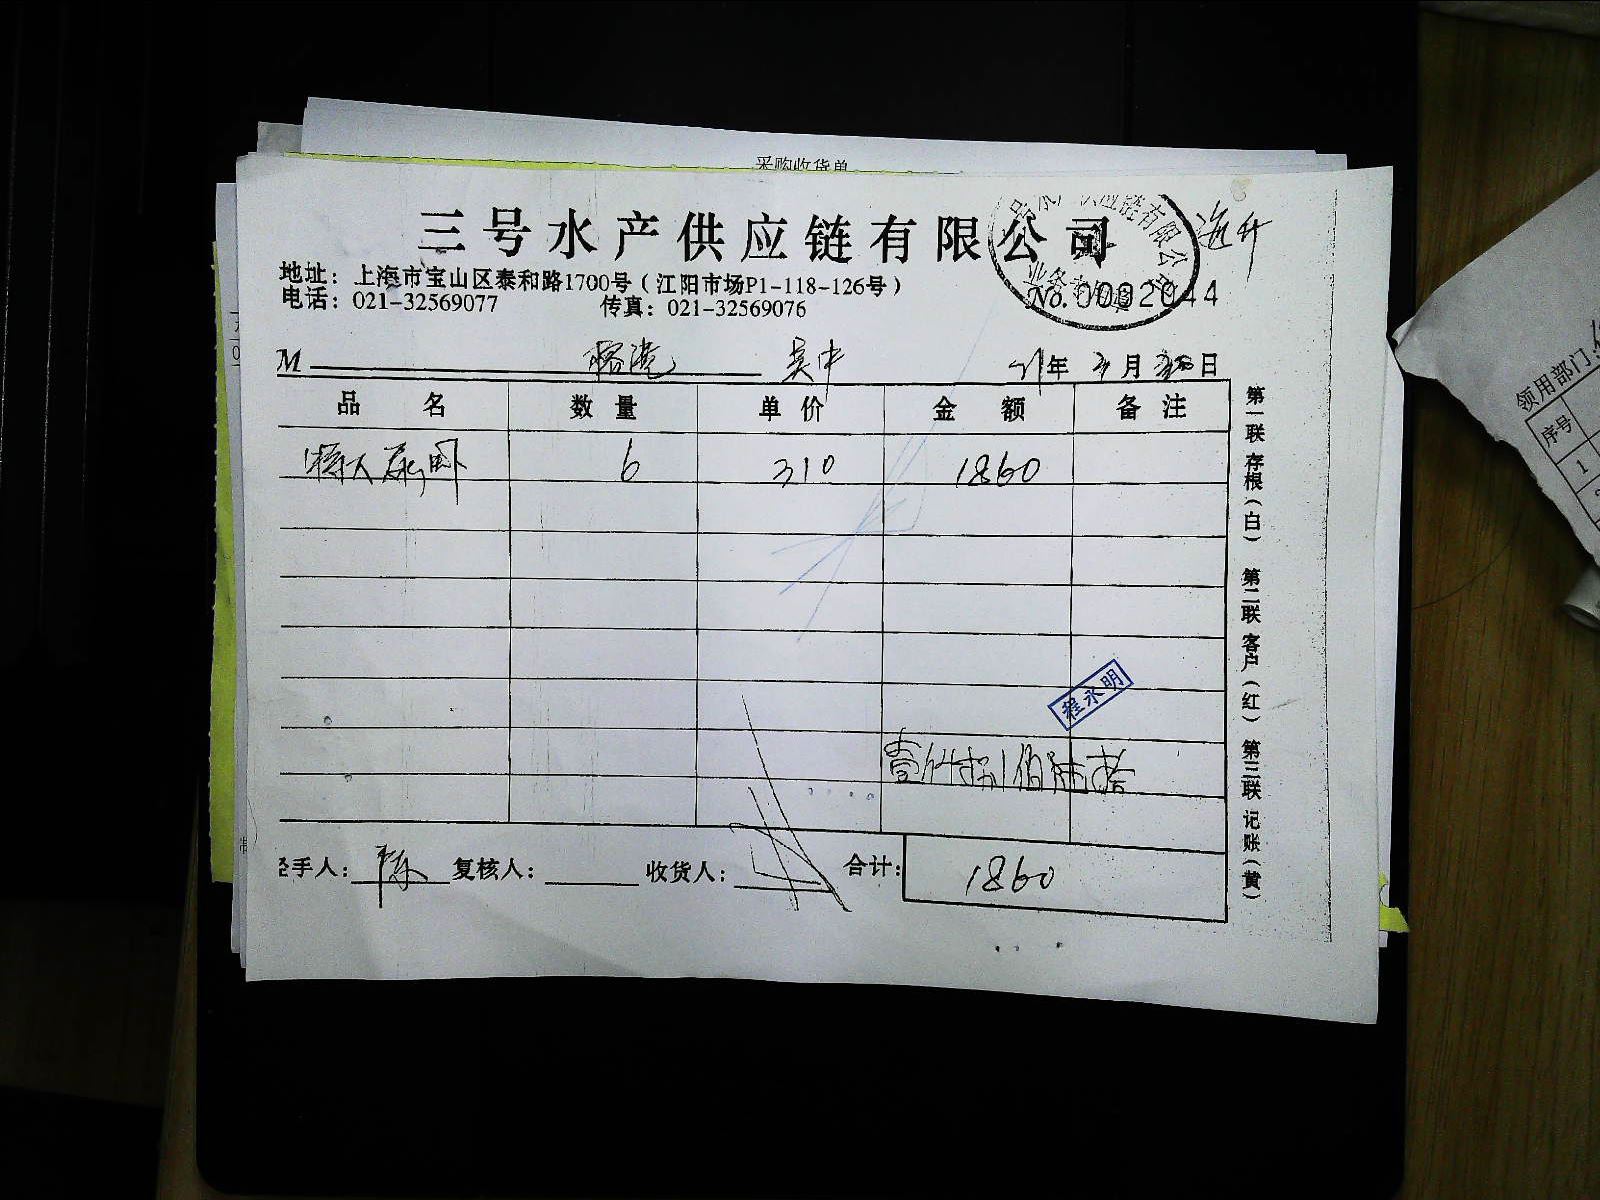 采购收货单
三号水产供应链有限公司
地址：上海市宝山区泰和路1700号（江阳市场P1-118-126号）
电话：021-32569077 传真：021-32569076
No.0002044
业务
M 吴中 21年 3月 日
品名 数量 单价 金额 备注
特大 6 310 1860
程永明
壹仟捌佰陆拾
经手人：陈 复核人： 收货人： 合计：1860
第一联 存根（白） 第二联 客户（红） 第三联 记账（黄）
领用部门
序号
1